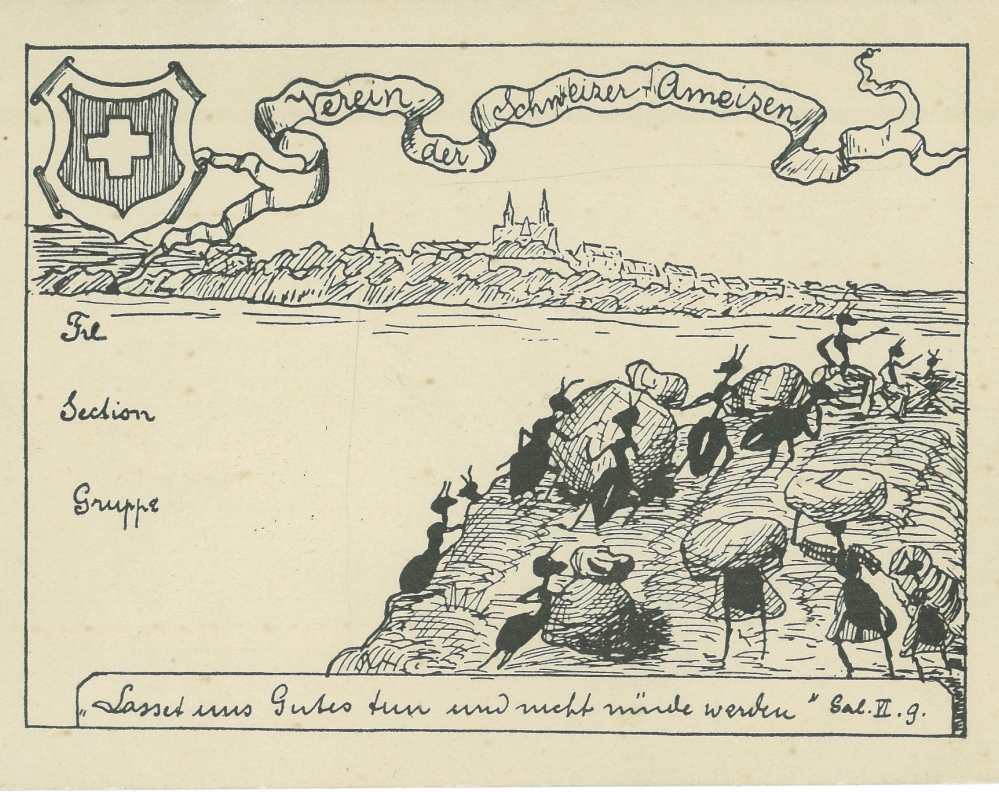 Verein der Schweizer-Ameisen
Frl
Section
Gruppe
„Lasset uns Gutes tun und nicht müde werden" Gal. VI. 9.